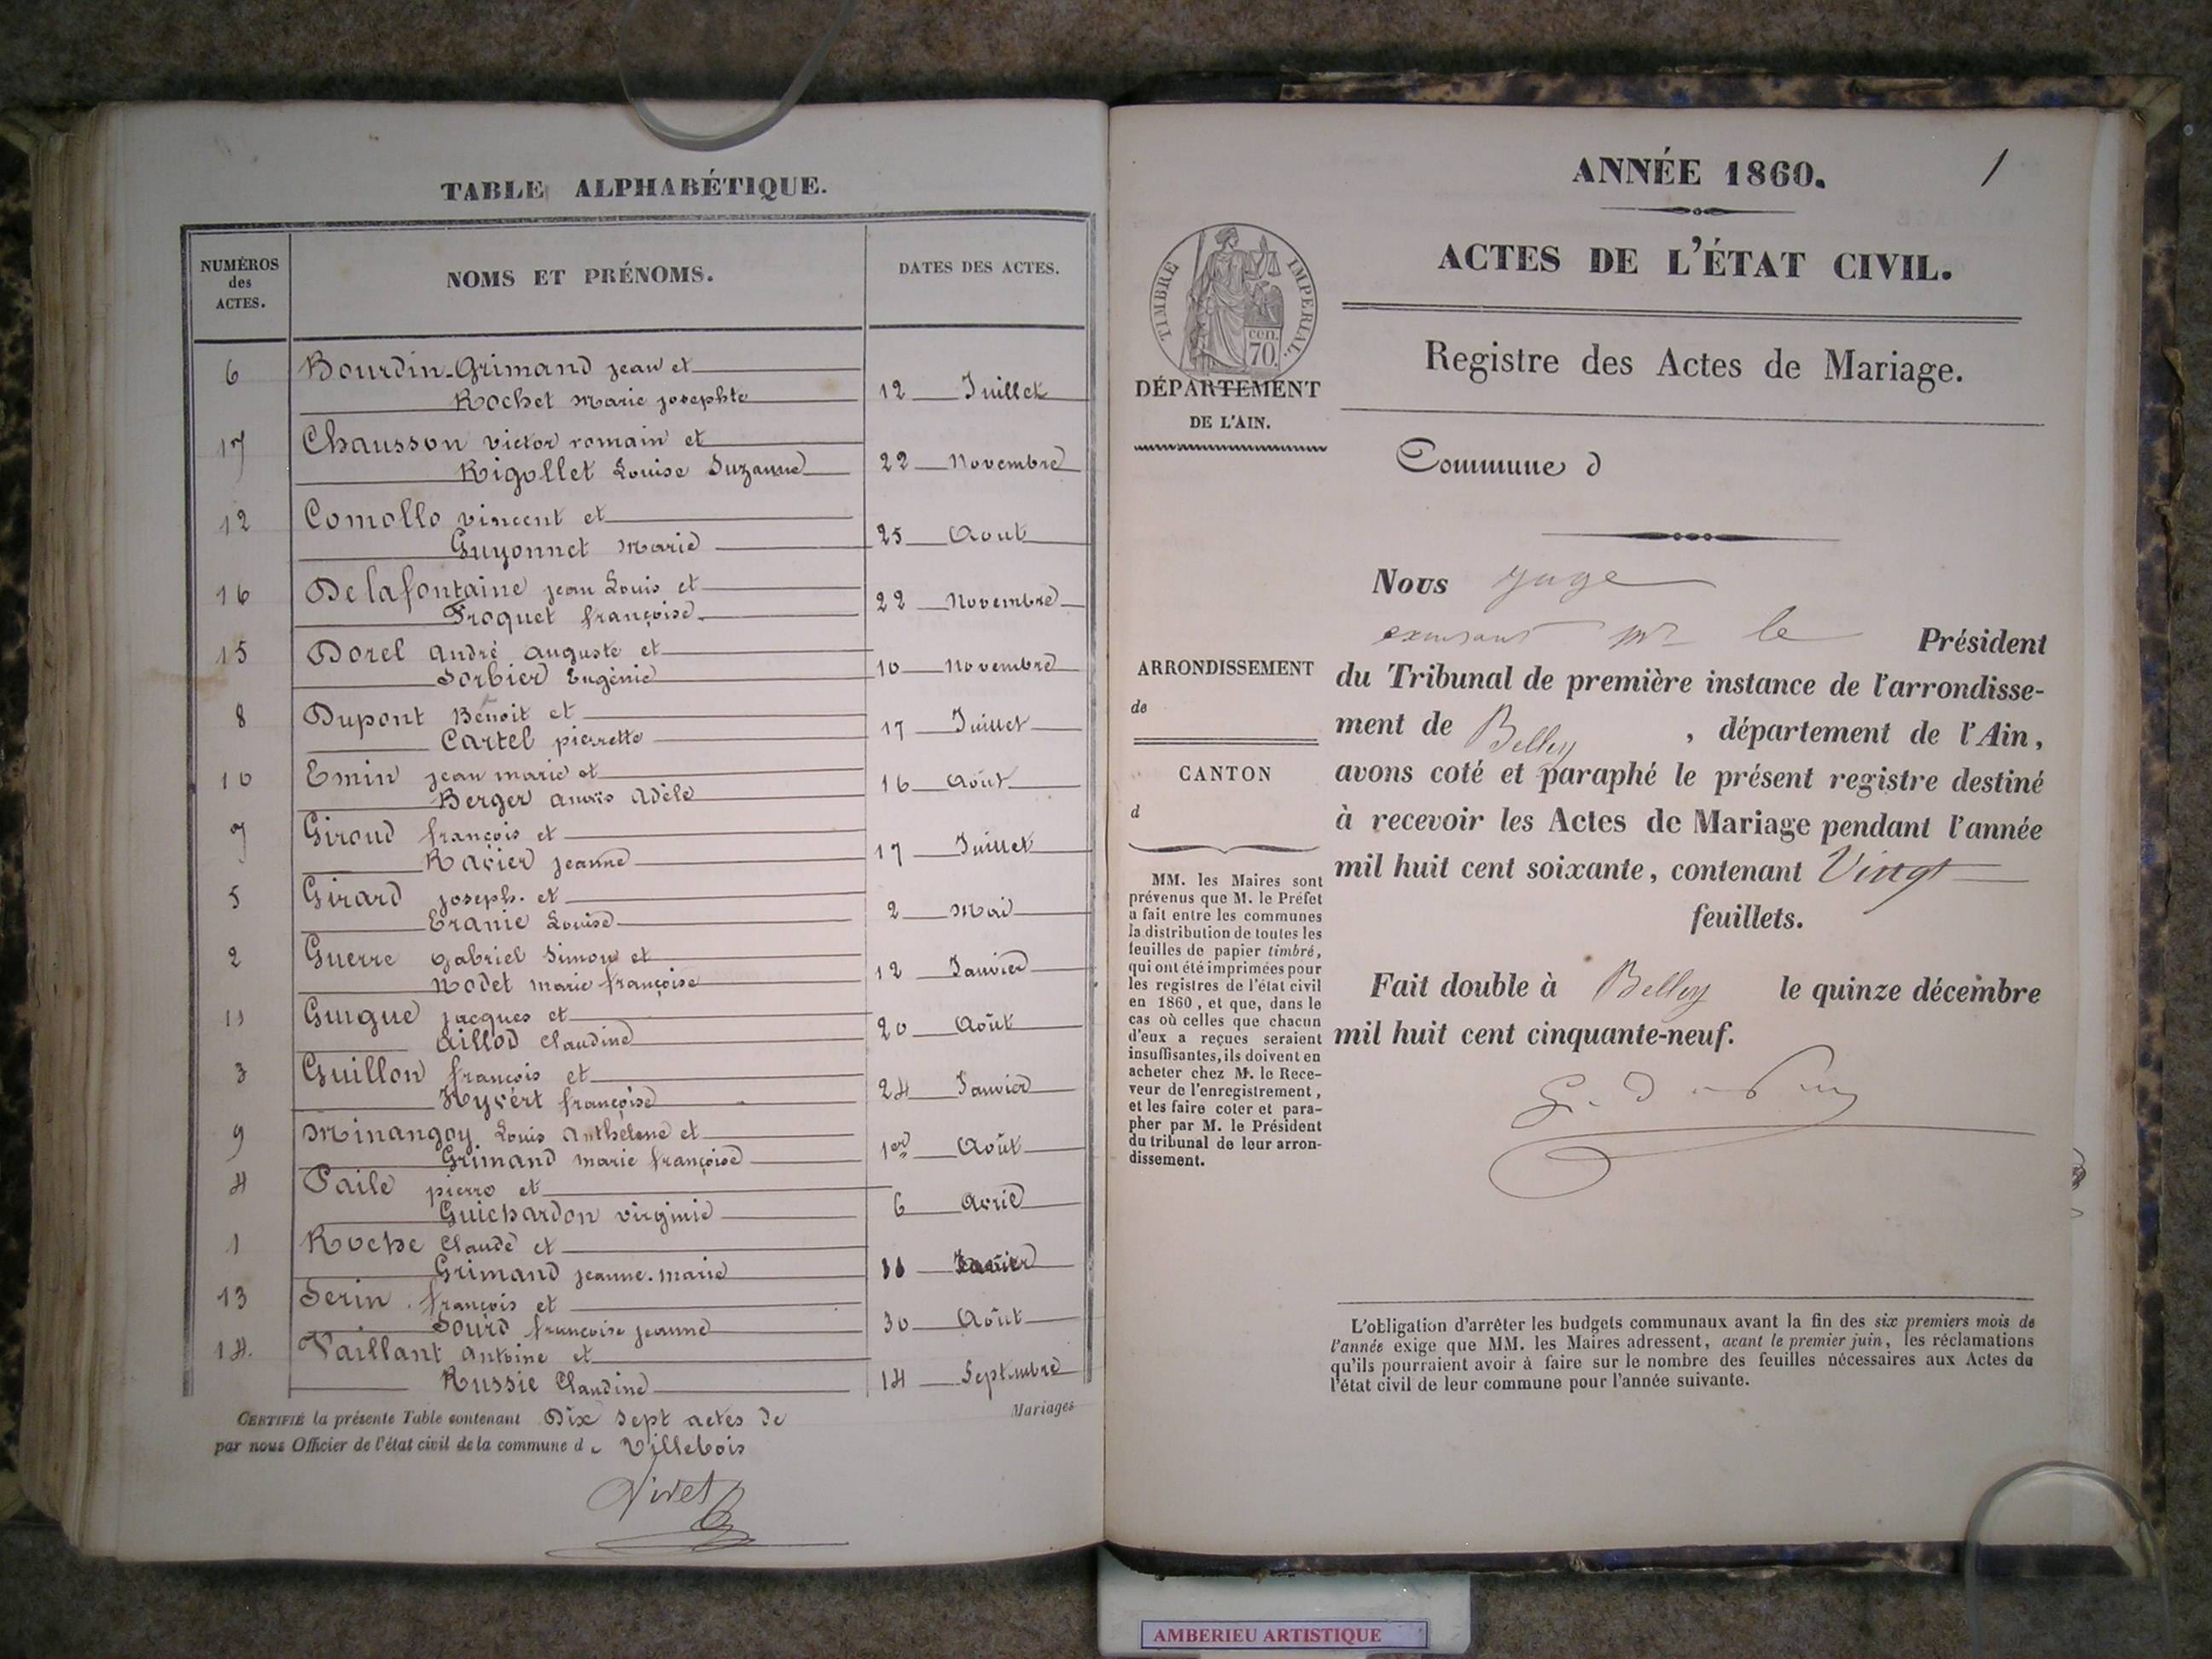 TABLE ALPHABÉTIQUE.
NUMÉROS des ACTES.
NOMS ET PRÉNOMS.
DATES DES ACTES.
6 Bourdin-Grimand jean et
Rochet marie josephte 12 Juillet
17 Chausson victor romain et
Rigollet Louise Suzanne 22 Novembre
12 Comollo vincent et
Guyonnet marie 25 Aout
16 Delafontaine jean Louis et
Froquet françoise 22 Novembre
15 Dorel andré auguste et
Sorbier Eugénie 10 Novembre
8 Dupont Benoit et
Cartel pierrette 17 Juillet
10 Emin jean marie et
Berger anaïs adèle 16 Août
7 Giroud françois et
Ravier jeanne 17 Juillet
5 Girard joseph. et
Eranie Louise 2 Mai
2 Guerre gabriel Simon et
Nodet marie françoise 12 Janvier
11 Guigue jacques et
aillod Claudine 20 Août
3 Guillon françois et
Hyvért françoise 24 Janvier
9 Minangoy Louis Anthelme et
Grimand marie françoise 1er Août
4 Paile pierre et
Guichardon virginie 6 avril
1 Roche Claude et
Grimand jeanne-marie 11 Janvier
13 Serin françois et
Sourd francoise jeanne 30 Août
14. Vaillant Antoine et
Russie Claudine 14 Septembre
CERTIFIÉ la présente Table contenant Dix Sept actes de
Mariages
par nous Officier de l'état civil de la commune de Villebois
ANNÉE 1860. 1
ACTES DE L'ÉTAT CIVIL.
TIMBRE IMPERIAL.
cen.
70.
DÉPARTEMENT
DE L'AIN.
Registre des Actes de Mariage.
Commune d
Nous juge
le Président
du Tribunal de première instance de l'arrondisse-
ment de Belley, département de l'Ain,
avons coté et paraphé le présent registre destiné
à recevoir les Actes de Mariage pendant l'année
mil huit cent soixante, contenant Vingt
feuillets.
Fait double à Belley le quinze décembre
mil huit cent cinquante-neuf.
ARRONDISSEMENT
de
CANTON
d
MM. les Maires sont
prévenus que M. le Préfet
a fait entre les communes
la distribution de toutes les
feuilles de papier timbré,
qui ont été imprimées pour
les registres de l'état civil
en 1860, et que, dans le
cas où celles que chacun
d'eux a reçues seraient
insuffisantes, ils doivent en
acheter chez M. le Rece-
veur de l'enregistrement,
et les faire coter et para-
pher par M. le Président
du tribunal de leur arron-
dissement.
L'obligation d'arrêter les budgets communaux avant la fin des six premiers mois de
l'année exige que MM. les Maires adressent, avant le premier juin, les réclamations
qu'ils pourraient avoir à faire sur le nombre des feuilles nécessaires aux Actes de
l'état civil de leur commune pour l'année suivante.
AMBERIEU ARTISTIQUE